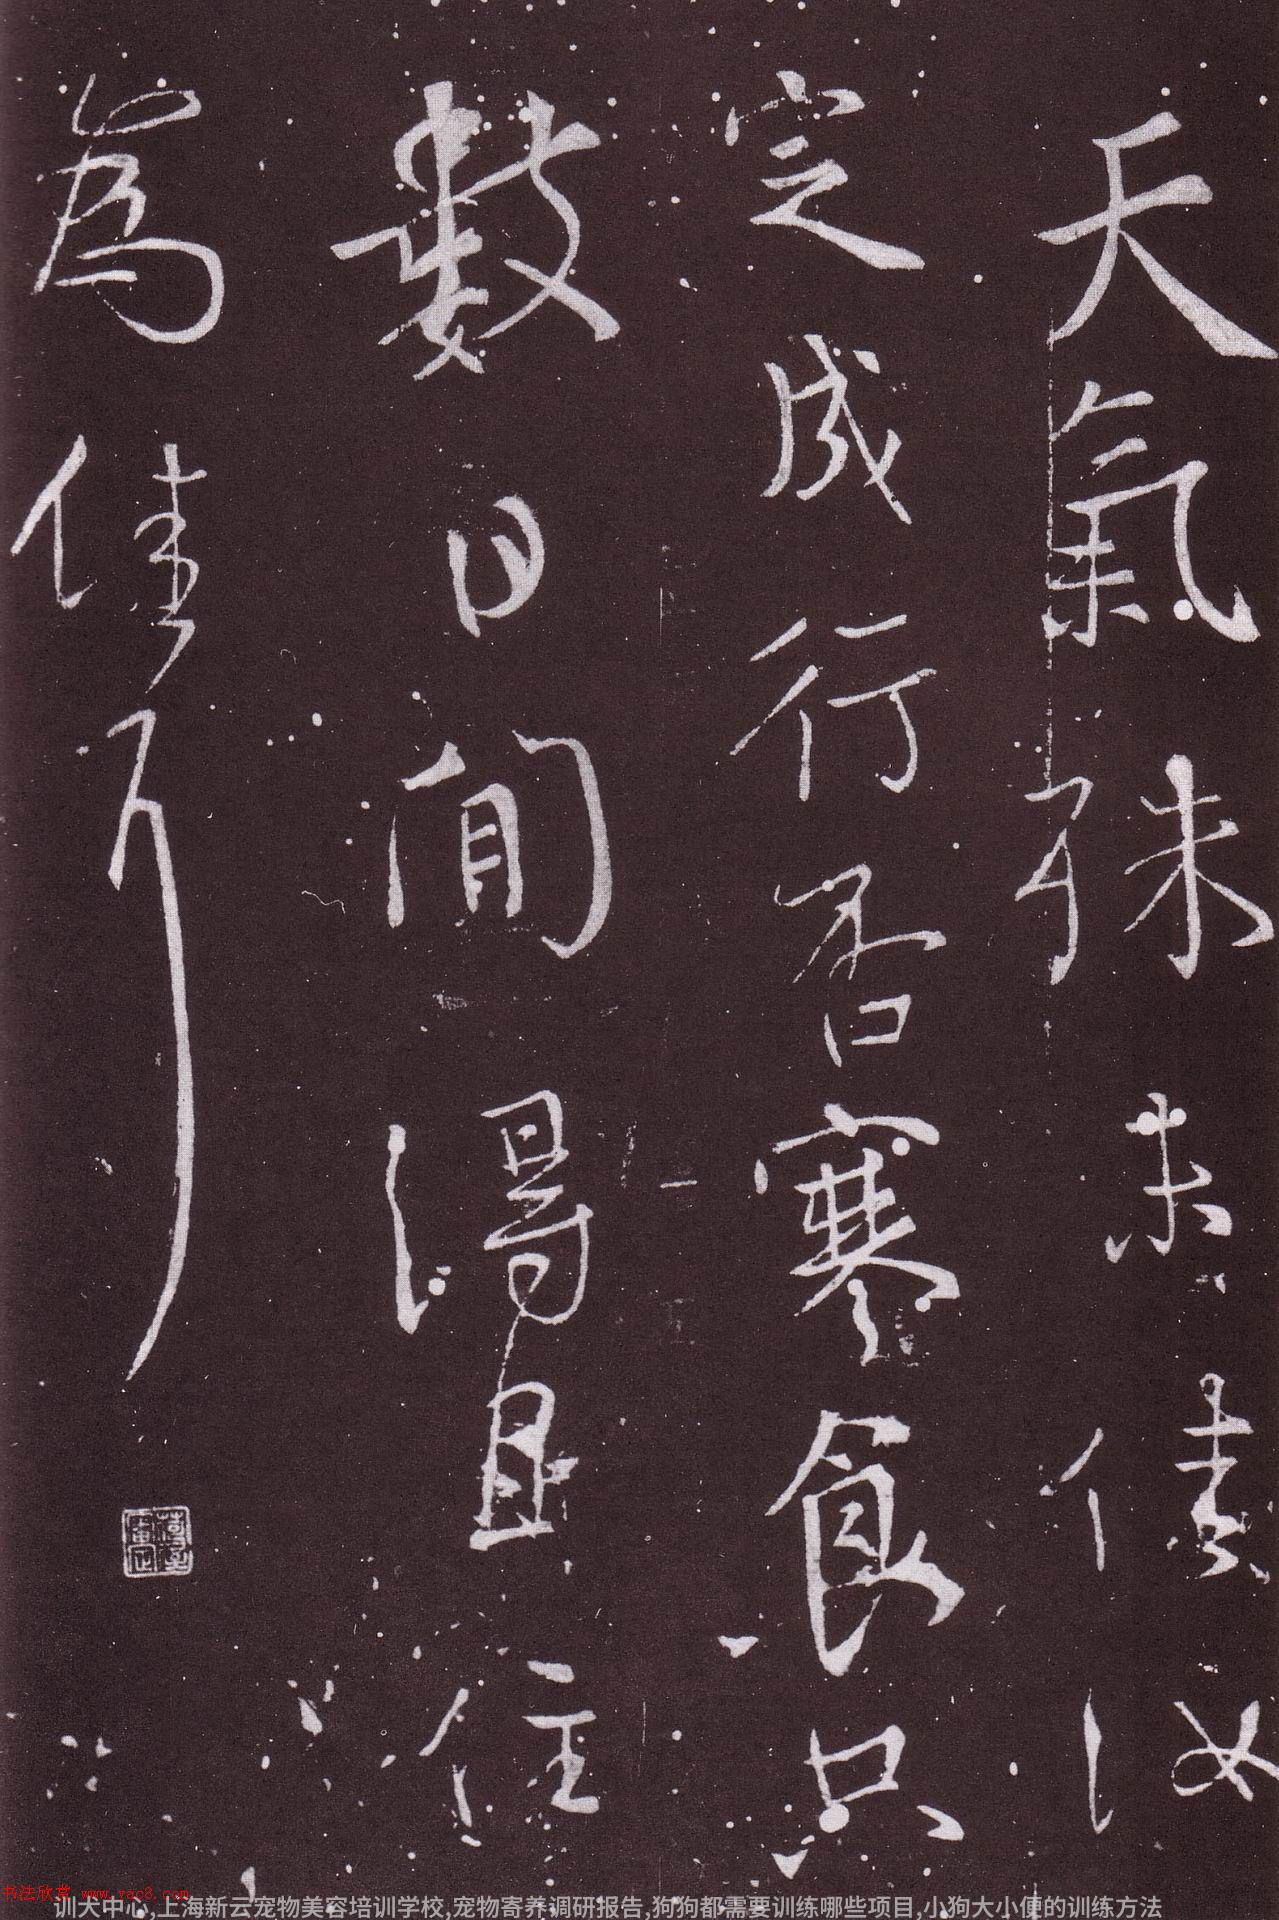 天氣殊未佳汝
定成行否寒食只
數日間得且住
為佳耳
书法欣赏 www.yac8.com
训犬中心,上海新云宠物美容培训学校,宠物寄养调研报告,狗狗都需要训练哪些项目,小狗大小便的训练方法